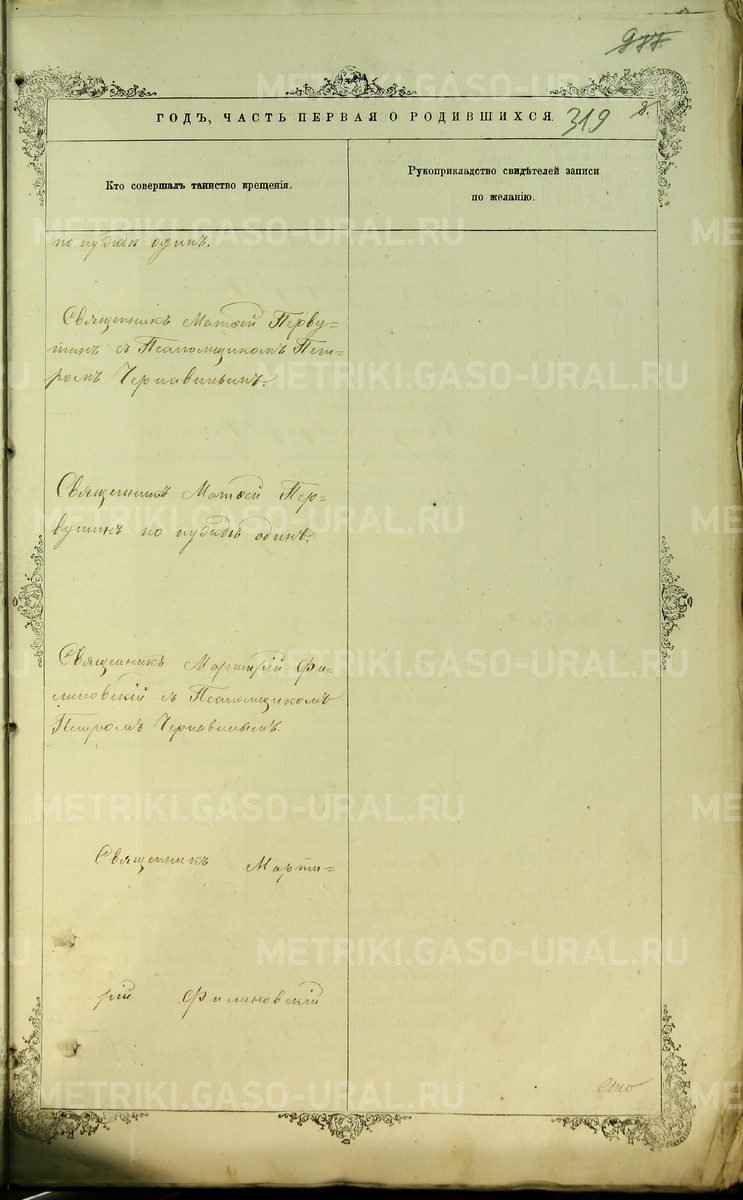 977
ГОДЪ, ЧАСТЬ ПЕРВАЯ О РОДИВШИХСЯ. 319
Кто совершалъ таинство крещенія.
Рукоприкладство свидѣтелей записи
по желанію.
по нуждѣ одинъ.
Священникъ Матѳей Перву=
шинъ съ Псаломщикомъ Пет=
ромъ Чернавинымъ.
Священникъ Матѳей Пер=
вушинъ по нуждѣ одинъ.
Священникъ Мартирій Фи=
линовскій съ Псаломщикомъ
Петромъ Чернавинымъ.
Священникъ Марти=
рій Филиновскій
сто
METRIKI.GASO-URAL.RU